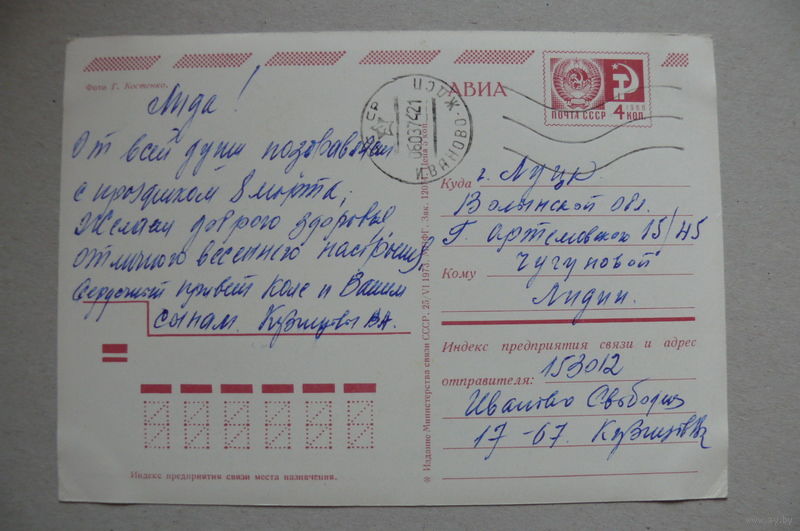 Фото Г. Костенко.
Лида!
От всей души поздравляем
с праздником 8 марта,
Желаем доброго здоровья
отличного весеннего настроения,
Сердечный привет Коле и Вашим
сынам. Кузнецовы ВА.
Индекс предприятия связи места назначения.
АВИА
1966
ПОЧТА СССР 4 КОП.
ИВАНОВО-ЖДСП
060374-21
Куда г. Луцк
Волынской обл.
Г. Артемовского 15/45
Кому Чугуновой
Лидии.
Индекс предприятия связи и адрес
отправителя: 153012
Иваново Свободы
17-67. Кузнецова
* Издание Министерства связи СССР. 25/VI 1973. МПФГ. Зак. 120 Цена 5 коп.